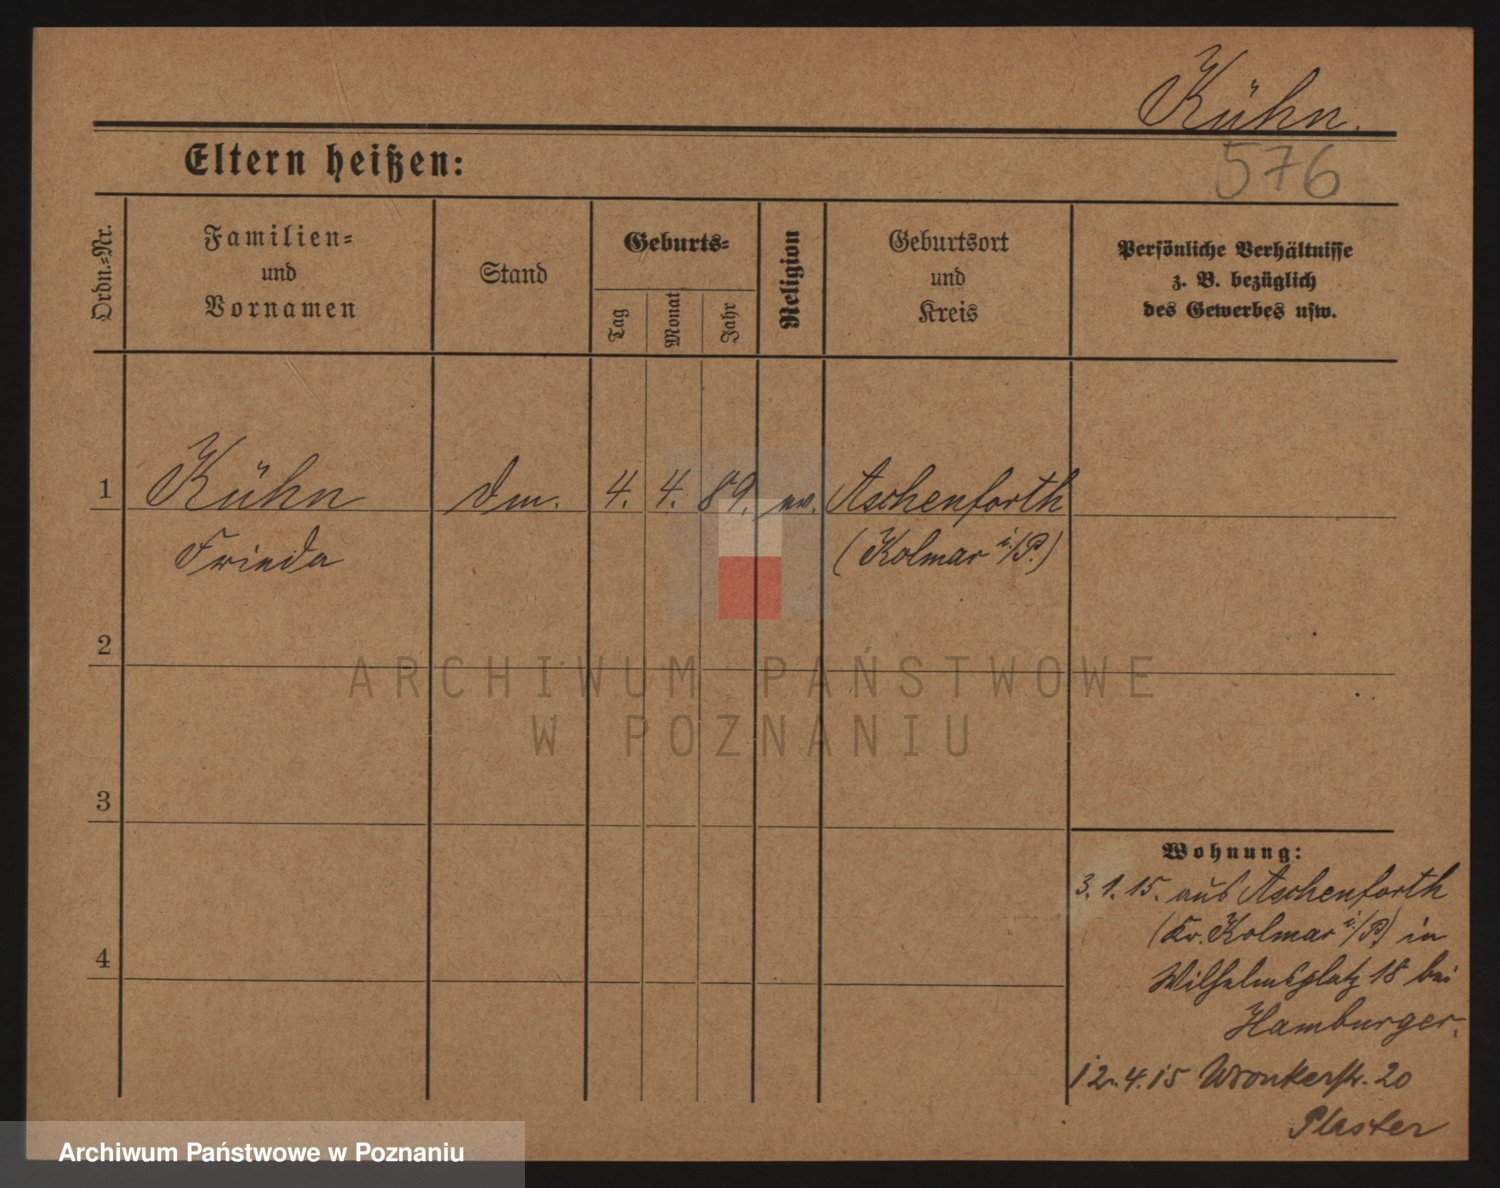 Kühn.
576
Eltern heißen:
Ordn.=Nr.
Familien=
und
Vornamen
Stand
Geburts=
Tag
Monat
Jahr
Religion
Geburtsort
und
Kreis
Persönliche Verhältnisse
z. B. bezüglich
des Gewerbes usw.
1 Kühn 4. 4. 89. ev. Aschenforth
Frieda (Kolmar i/P.)
2
3
4
Wohnung:
3. 1. 15. aus Aschenforth
(Kr. Kolmar i/P.) in
Wilhelmsplatz 18 bei
Hamburger.
12. 4. 15 Wronkerstr. 20
Plaster
ARCHIWUM PAŃSTWOWE
W POZNANIU
Archiwum Państwowe w Poznaniu